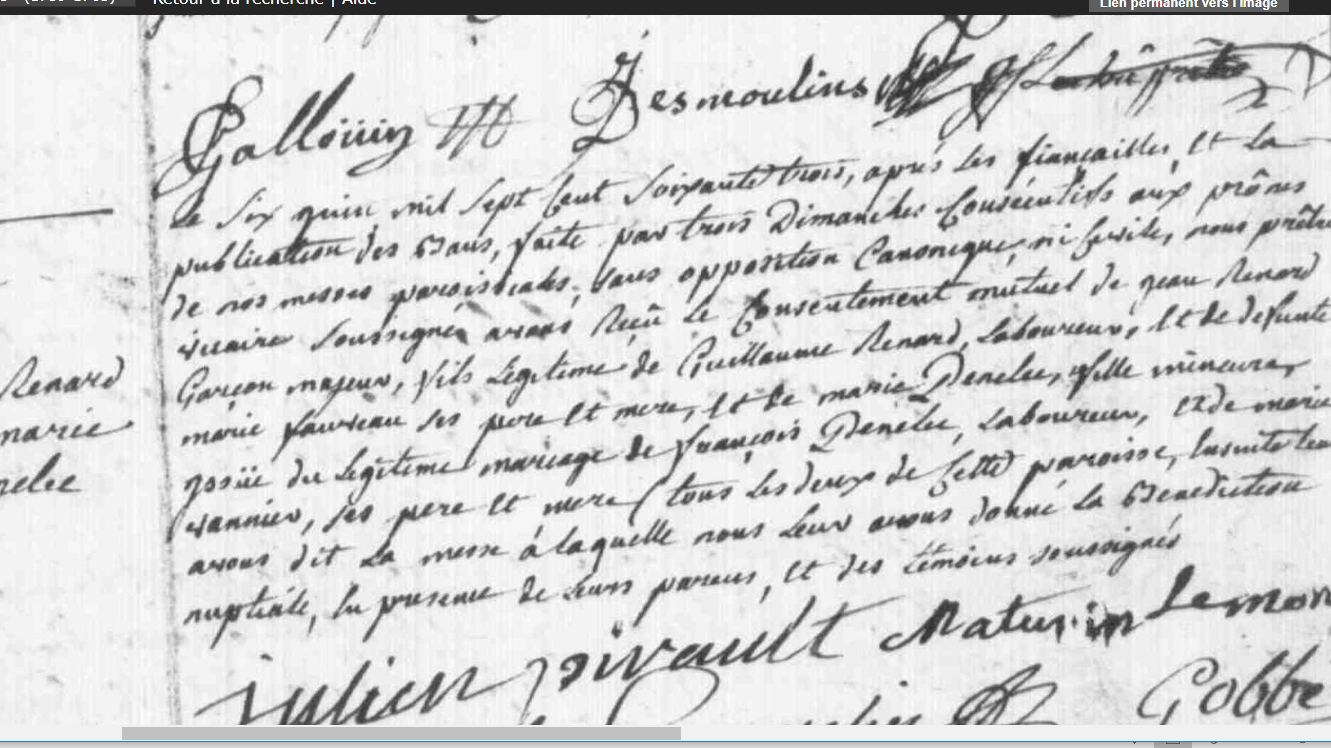 Retour à la recherche | Aide
Lien permanent vers l'image
Galloüin Desmoulins
Le six juin mil sept cent soixante trois, après les fiancailles, et la
publication des bans, faite par trois Dimanches consécutifs aux prônes
de nos messes paroissiales, sans opposition canonique, ni civile, nous prêtre
vicaire soussigné avons reçû le consentement mutuel de jean Renard
Garçon majeur, fils légitime de Guillaume Renard, laboureur, et de defunte
marie fauveau ses pere et mere, et de marie Denelee, fille mineure,
issüe du legitime mariage de françois Denelee, laboureur, et de marie
vannier, ses pere et mere, tous les deux de cette paroisse, ensuite
avons dit la messe à laquelle nous leur avons donné la benediction
nuptiale, en presence de leurs parens, et des témoins soussignés
Renard
marie
nelee
julien sivault Maturin Lemon
Gobbé